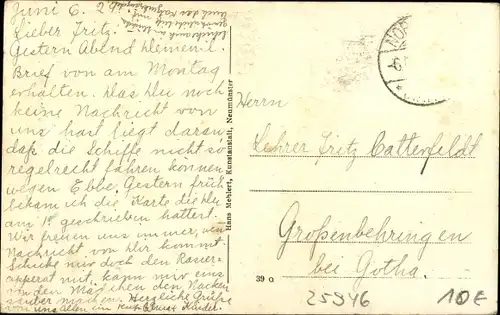 Juni 6. 2
Lieber Fritz.
Gestern Abend
Brief von am Montag
erhalten. Das Du noch
keine Nachricht von
uns hast liegt daran
daß die Schiffe nicht so
regelrecht fahren können
wegen Ebbe. Gestern früh
bekam ich die Karte die Du
am 1. geschrieben hattest.
Wir freuen uns immer, wenn
Nachricht von Dir kommt.
Schicke mir doch den Rasier-
apperat mit, kann mir eins
von den Mädchen den Nacken
sauber machen. Herzliche Grüße
von uns Allen
Hans Mehlert, Kunstanstalt, Neumünster
NOR
Herrn
Lehrer Fritz Catterfeldt
Großenbehringen
bei Gotha.
39 a
25946
10E